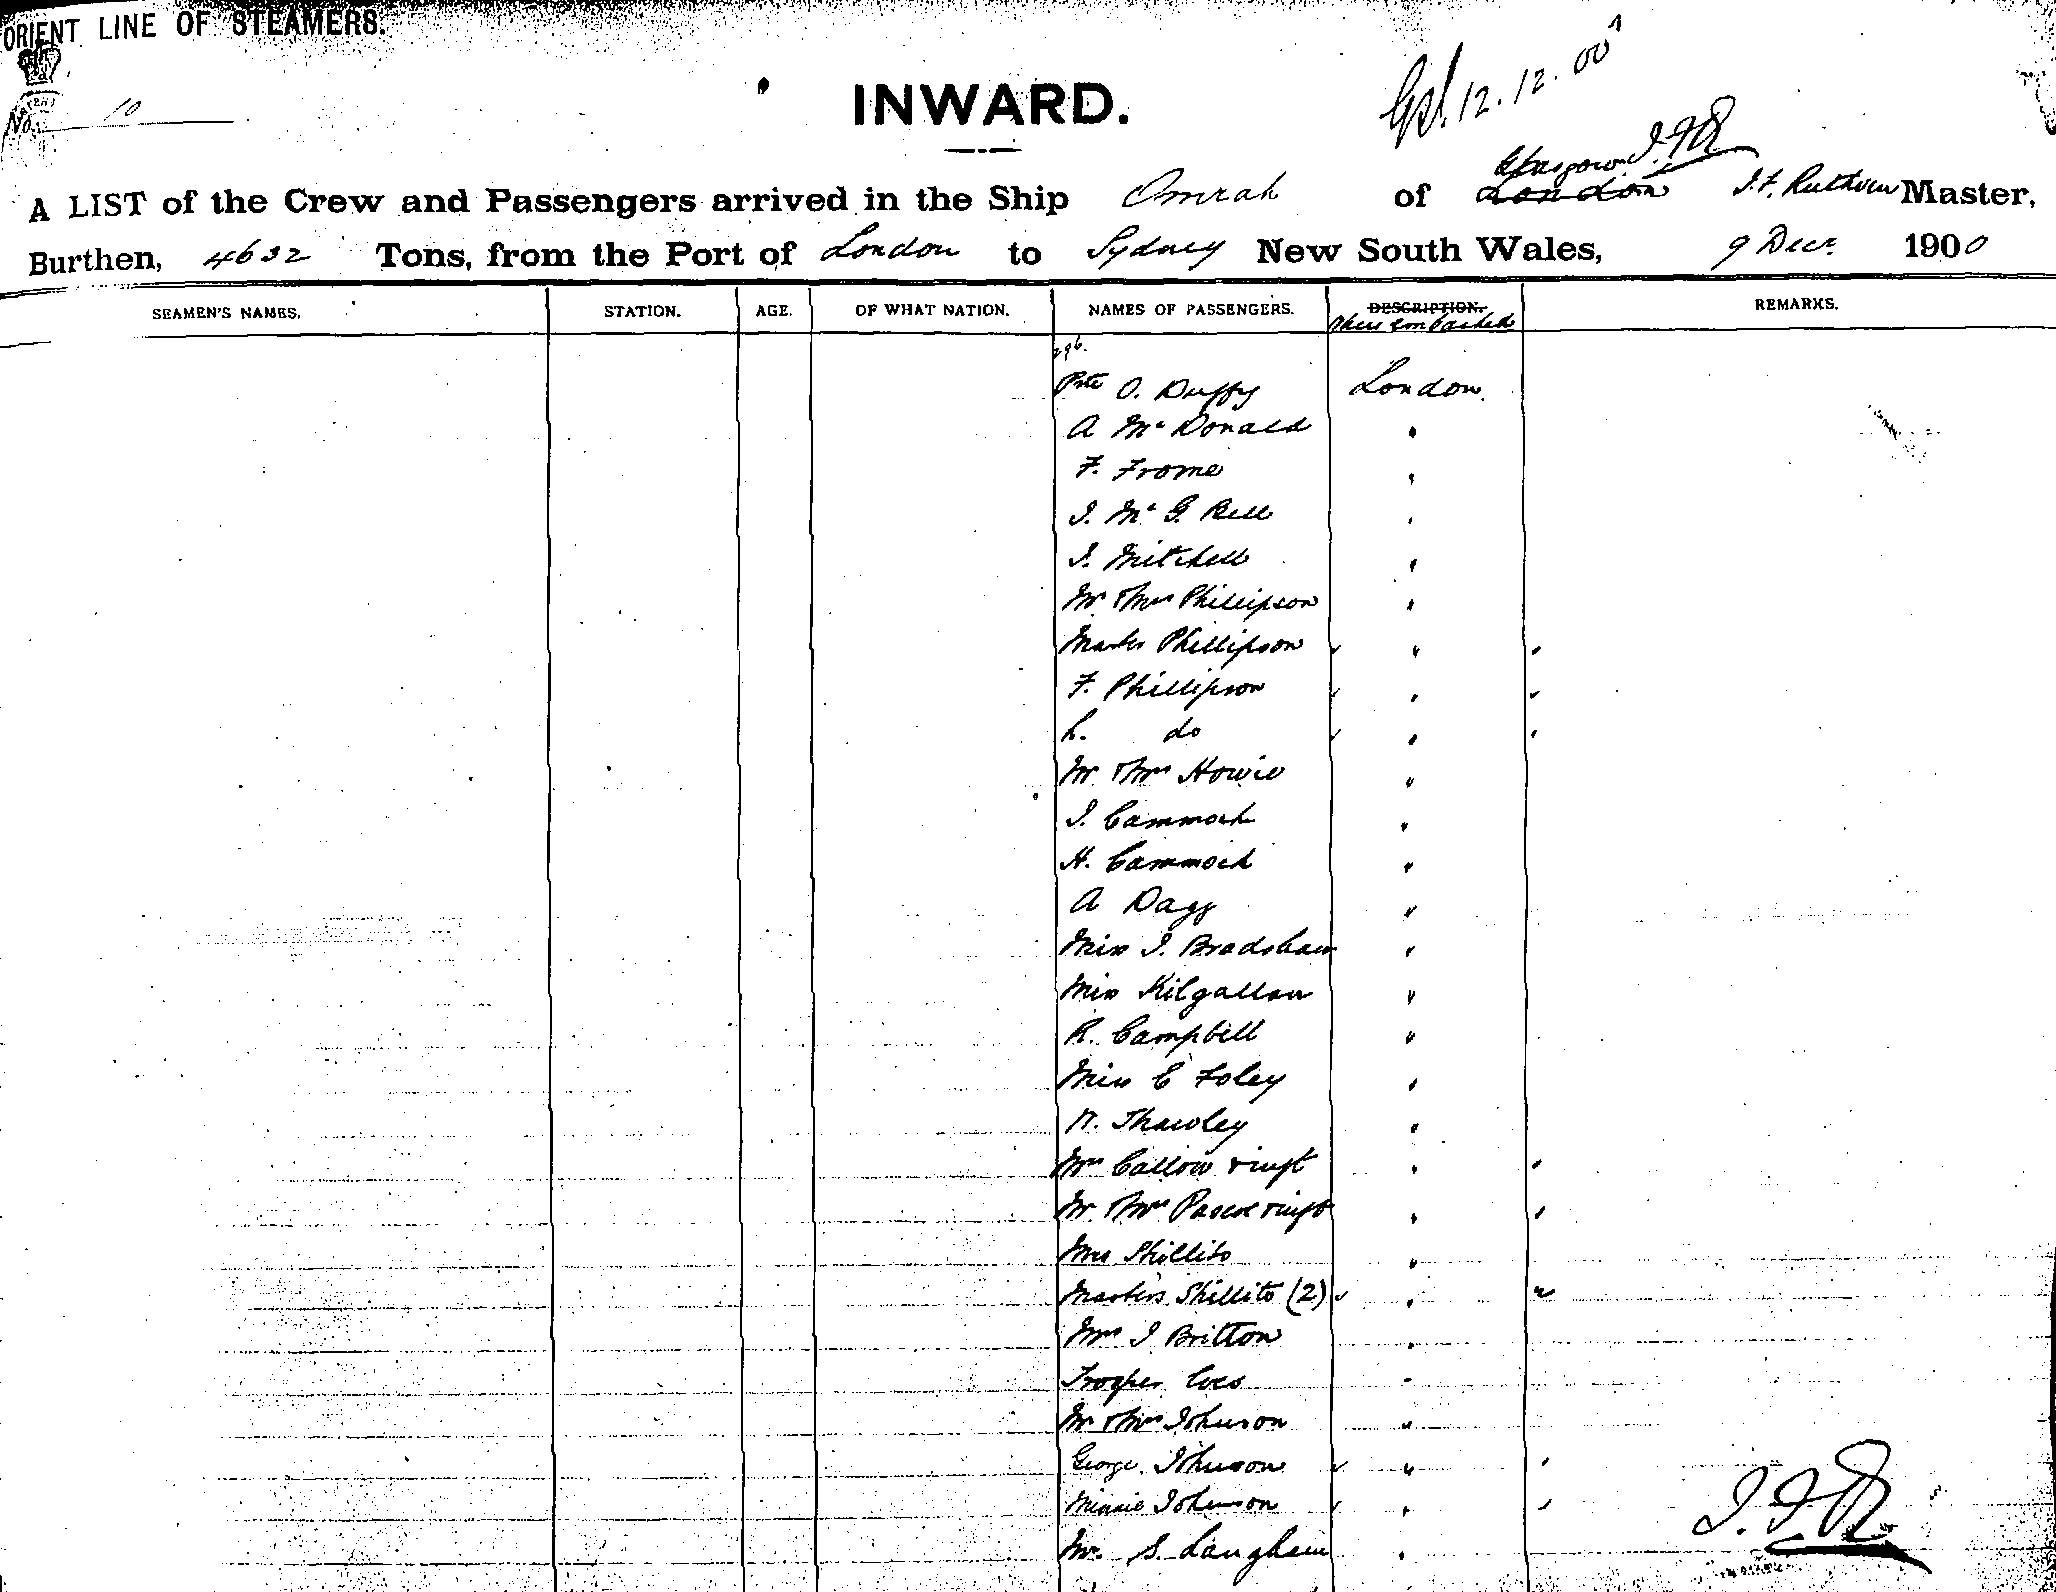 ORIENT LINE OF STEAMERS.
No. 10
INWARD.
12.12.00
Glasgow J.F.R.
A LIST of the Crew and Passengers arrived in the Ship Omrah of London J.F. Ruthven Master,
Burthen, 4632 Tons, from the Port of London to Sydney New South Wales, 9 Decr. 1900
SEAMEN'S NAMES. STATION. AGE. OF WHAT NATION. NAMES OF PASSENGERS. DESCRIPTION. REMARKS.
Where embarked
296.
Pte O. Duffy London.
A McDonald "
F. Frome "
J. McG. Bell "
J. Mitchell "
Mr & Mrs Phillipson "
Master Phillipson "
F. Phillipson "
L. do "
Mr & Mrs Howie "
J. Cammock "
H. Cammock "
A Dagg "
Miss J. Bradshaw "
Miss Kilgallon "
R. Campbell "
Miss E Foley "
N. Thawley "
Mrs Callow & inft "
Mr & Mrs Pascoe & inft "
Mrs Shillito "
Masters Shillito (2) "
Mrs J Britton "
Trooper Coes "
Mr & Mrs Johnson "
George Johnson "
Minnie Johnson "
Mr. S. Langham "
J.F.R.